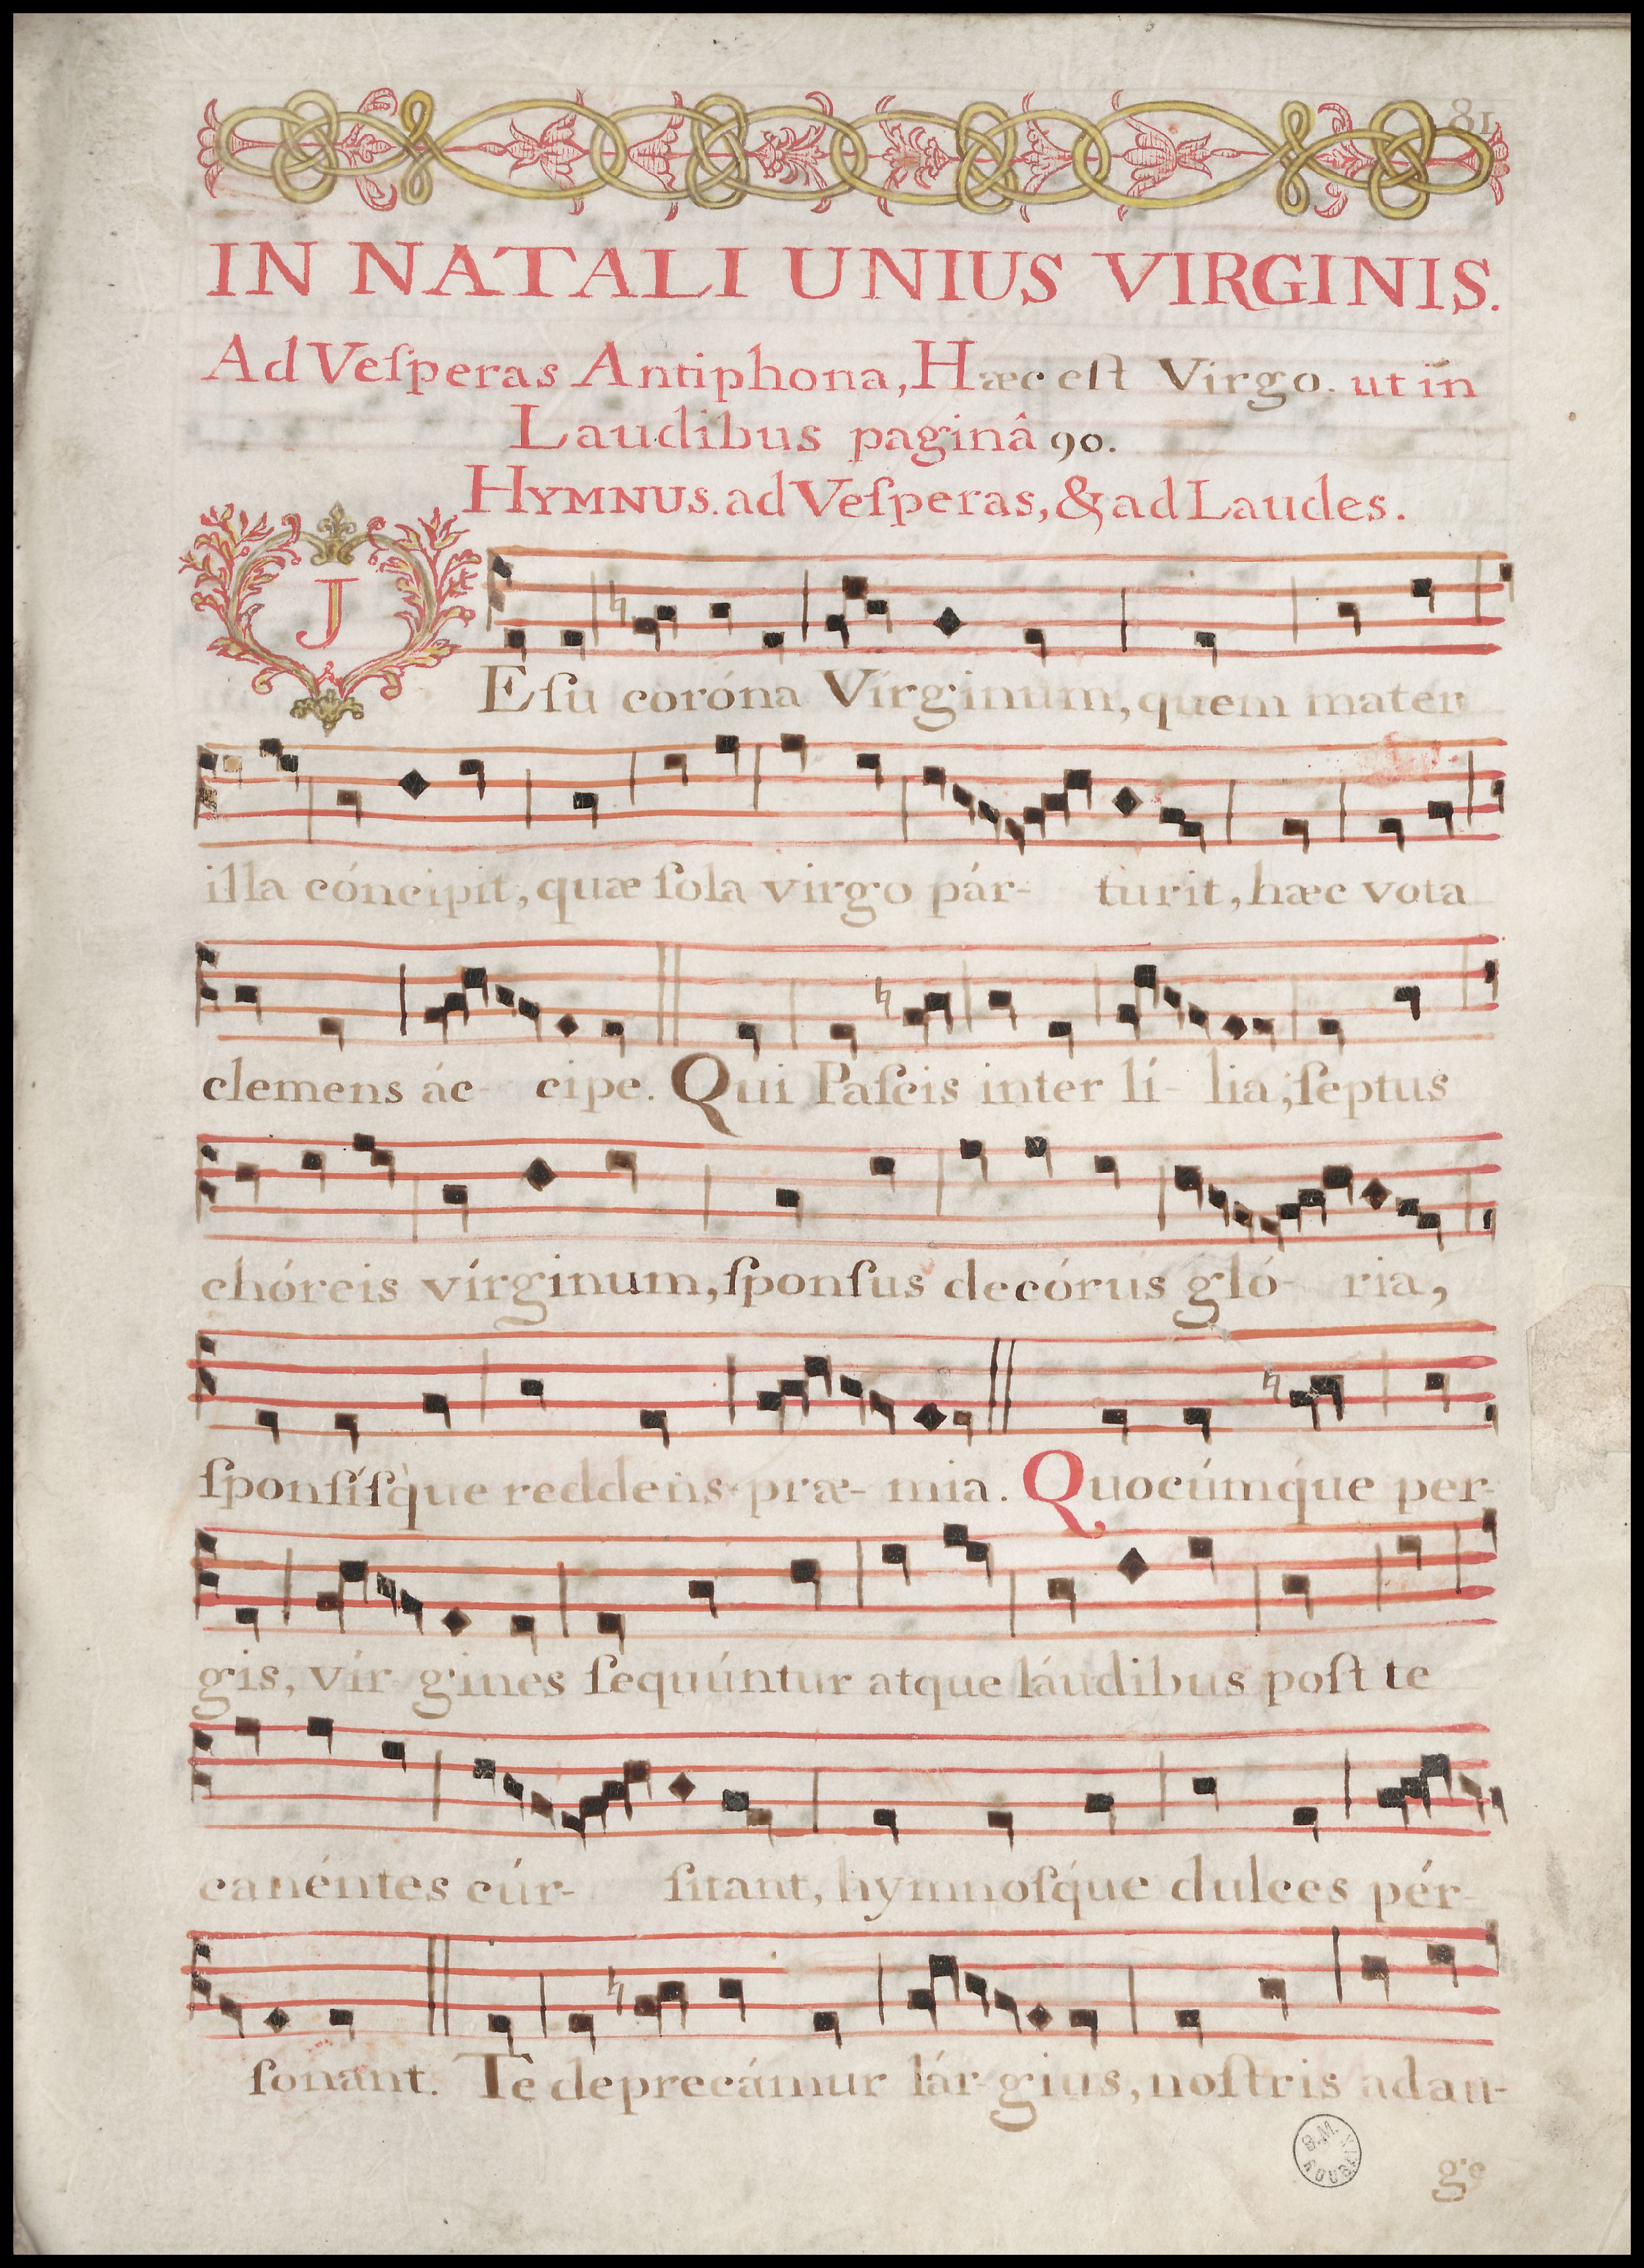 81
IN NATALI UNIUS VIRGINIS.
Ad Veſperas Antiphona, Hæc eſt Virgo. ut in
Laudibus paginâ 90.
HYMNUS. ad Veſperas, & ad Laudes.
JEſu coróna Vírginum, quem mater
illa cóncipit, quæ ſola virgo pár- turit, hæc vota
clemens ác- cipe. Qui Paſcis inter lí- lia, ſeptus
chóreis vírginum, ſponſus decórus gló- ria,
ſponſíſque reddens præ- mia. Quocúmque per-
gis, vír gines ſequúntur atque láudibus poſt te
canéntes cúr- ſitant, hymnoſque dulces pér-
ſonant. Te deprecámur lár-gius, noſtris adau-
B.M.
ge